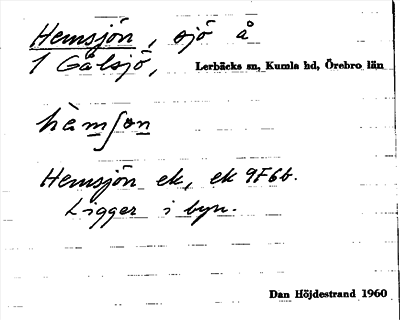 Hemsjön, sjö å
1 Gålsjö, Lerbäcks sn, Kumla hd, Örebro län
hèmʃən
Hemsjön ek, ek 9F6b.
Ligger i byn.
Dan Höjdestrand 1960